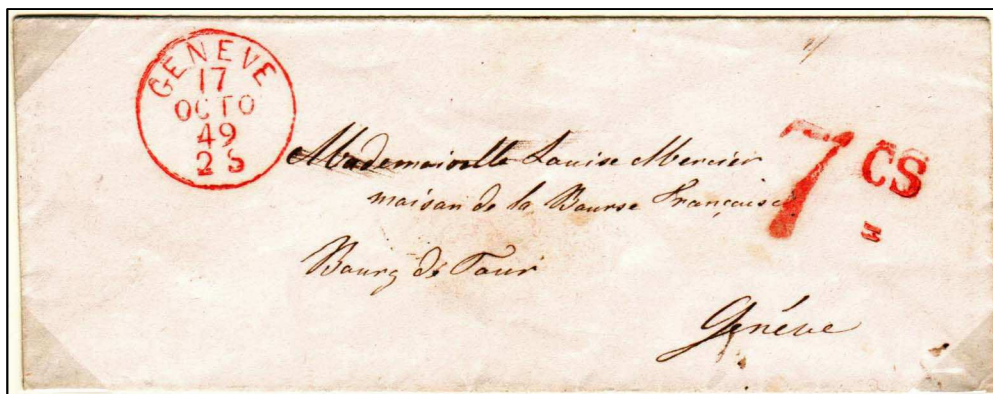 GENEVE
17
OCTO
49
2 S
Mademoiselle Louise Mercier
maison de la Bourse Française
Bourg de Four
Genève
7 CS